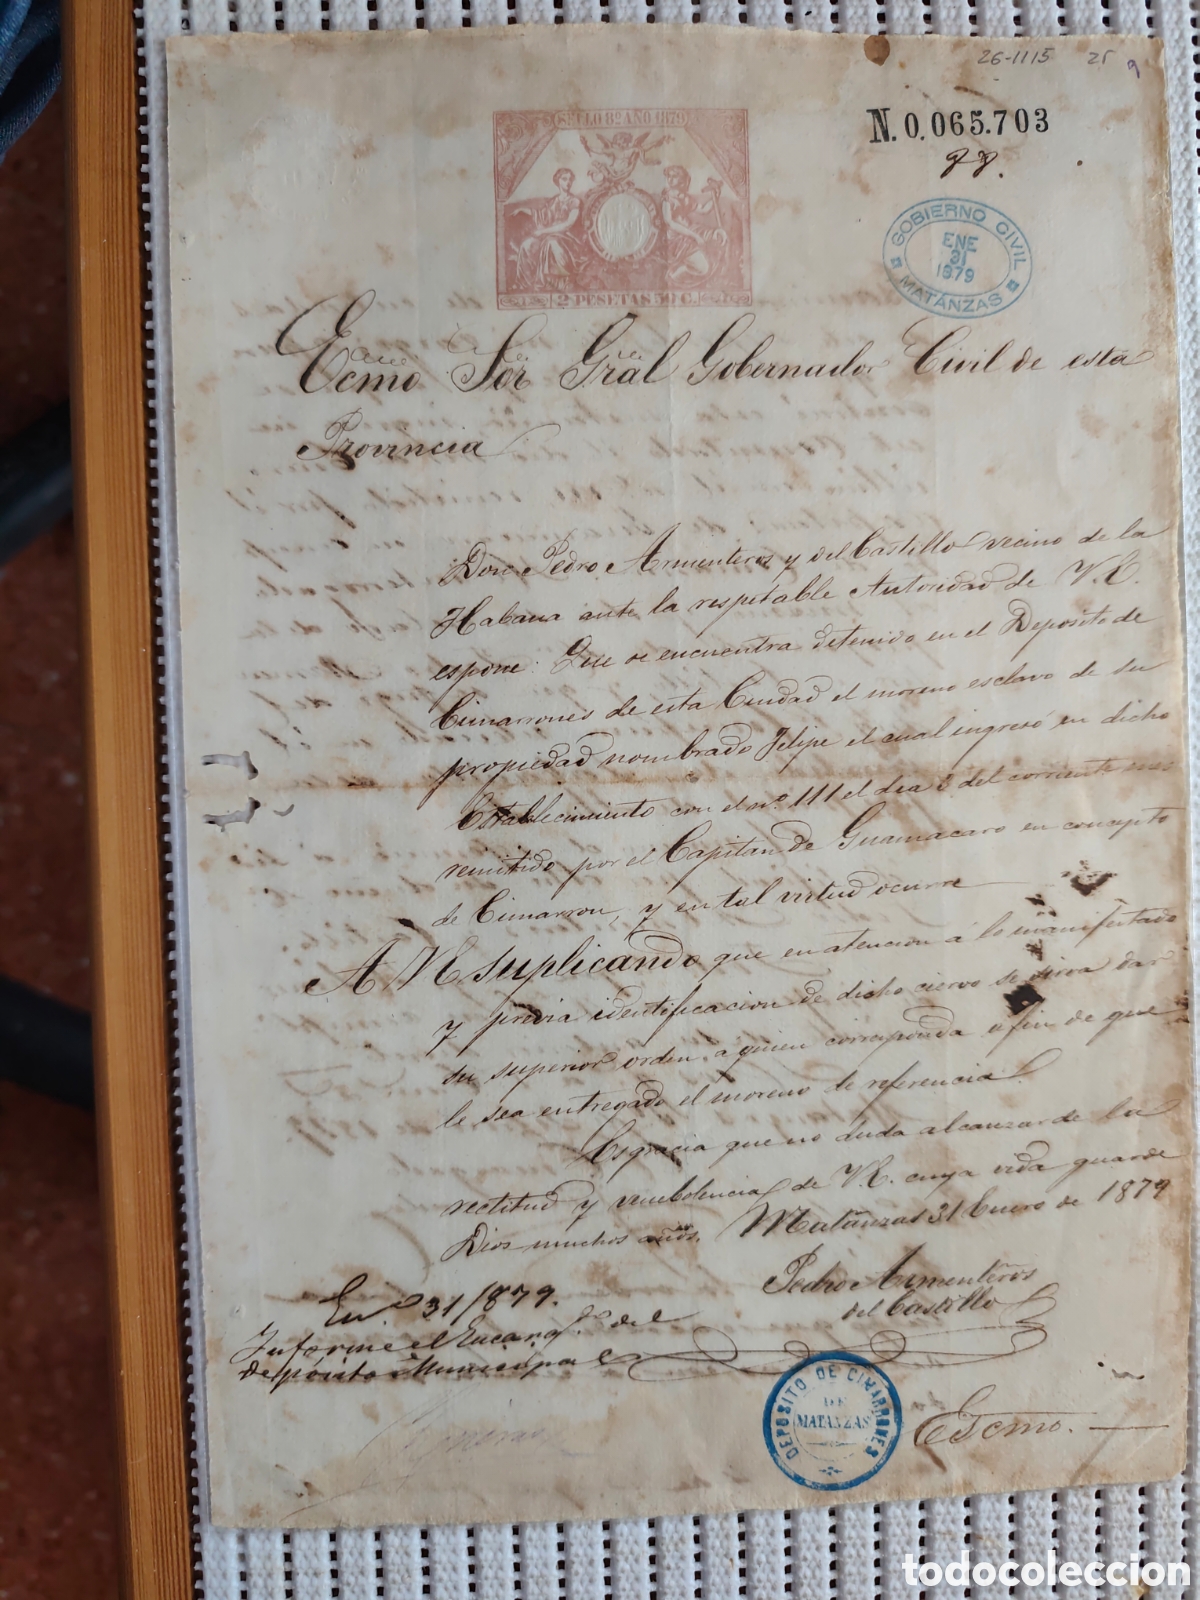 26-1115 25 9
SELLO 8º AÑO 1879
2 PESETAS 50 C.
N.0,065.703
GOBIERNO CIVIL
ENE
31
1879
MATÁNZAS
Ecmo Sor Gral Gobernador Civil de esta
Provincia
Don Pedro Armenteros y del Castillo vecino de la
Habana ante la respetable Autoridad de V.E.
espone: Que se encuentra detenido en el Deposito de
Cimarrones de esta Ciudad el moreno esclavo de su
propiedad nombrado Felipe el cual ingresó en dicho
Establecimiento con el nº 111 el dia del corriente mes
remitido por el Capitan de Guamacaro en concepto
de Cimarron, y en tal virtud ocurre
A VE suplicando que en atencion á lo manifestado
y previa identificacion de dicho ciervo se sirva dar
su superior orden a quien corresponda afin de que
le sea entregado el moreno de referencia.
Es gracia que no duda alcanzar de la
rectitud y venebolencia de V.E. cuya vida guarde
Dios muchos años. Matanzas 31 Enero de 1879
Pedro Armenteros
del Castillo
Enº 31/879.
Informe el Encargdo del
depósito Municipal
DEPOSITO DE CIMARRONES
DE
MATANZAS
Escmo.
todocoleccion